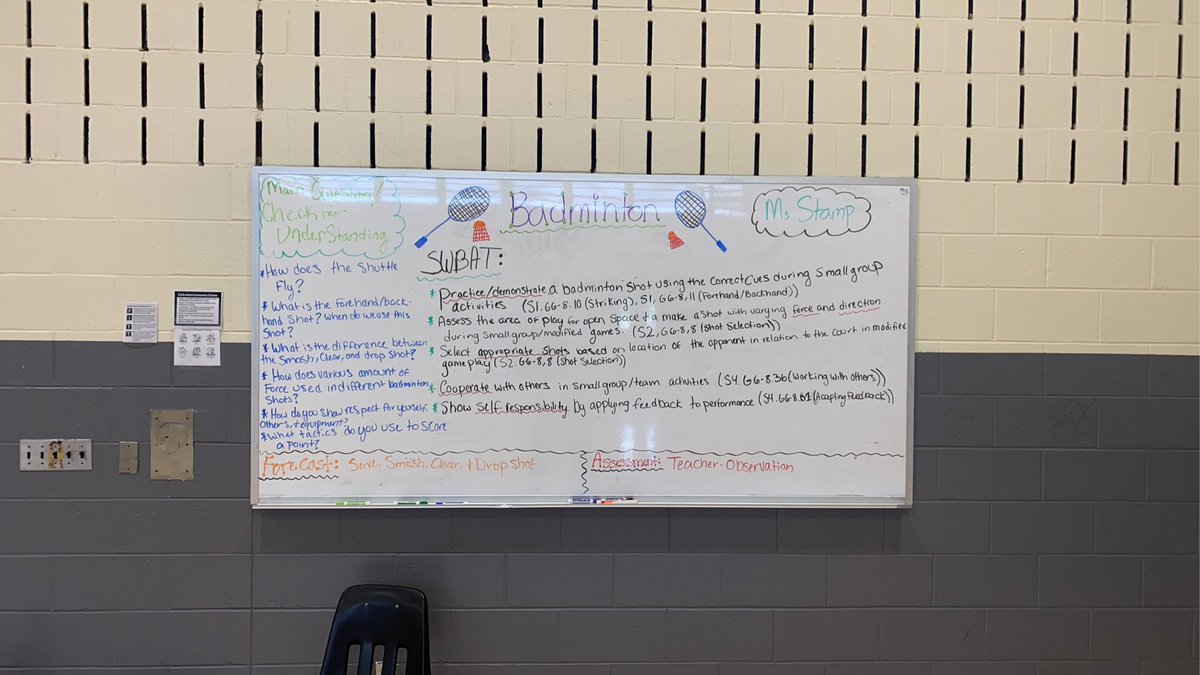 Main Question/
Check for
Understanding
*How does the Shuttle
Fly?
*What is the Forehand/back-
hand Shot? When do we use this
Shot?
*What is the difference between
the Smash, Clear, and drop Shot?
*How does various amount of
Force used in different badminton
Shots?
*How do you show respect for yourself,
Others, + equipment?
*What tactics do you use to score
a point?
Badminton
Ms Stamp
SWBAT:
* Practice/demonstrate a badminton Shot using the Correct Cues during Small group
activities (S1.G6-8.10 (Striking), S1, G6-8, 11 (Forehand/Backhand))
* Assess the area of play for open Space + a make a Shot with varying force and direction
during Small group/modified games. (S2, G6-8, 8 (Shot Selection))
* Select appropriate Shots based on location of the opponent in relation to the court in modified
game play (S2 G6-8, 8 (Shot Selection))
* Cooperate with others in small group/team activities (S4. G6-8.36 (Working with others))
* Show Self-Responsibility by applying feedback to performance (S4. G6-8.
(Accepting Feedback))
Forecast: Serve, Smash, Clear, + Drop shot
Assessment: Teacher-Observation